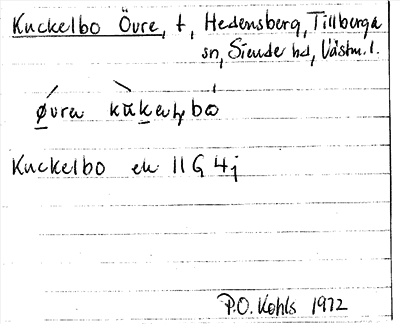 Kuckelbo Övre, t, Hedensberg, Tillberga
sn, Siende hd, Västm. l.
Kuckelbo ek 11 G 4j
P.O. Kohls 1972